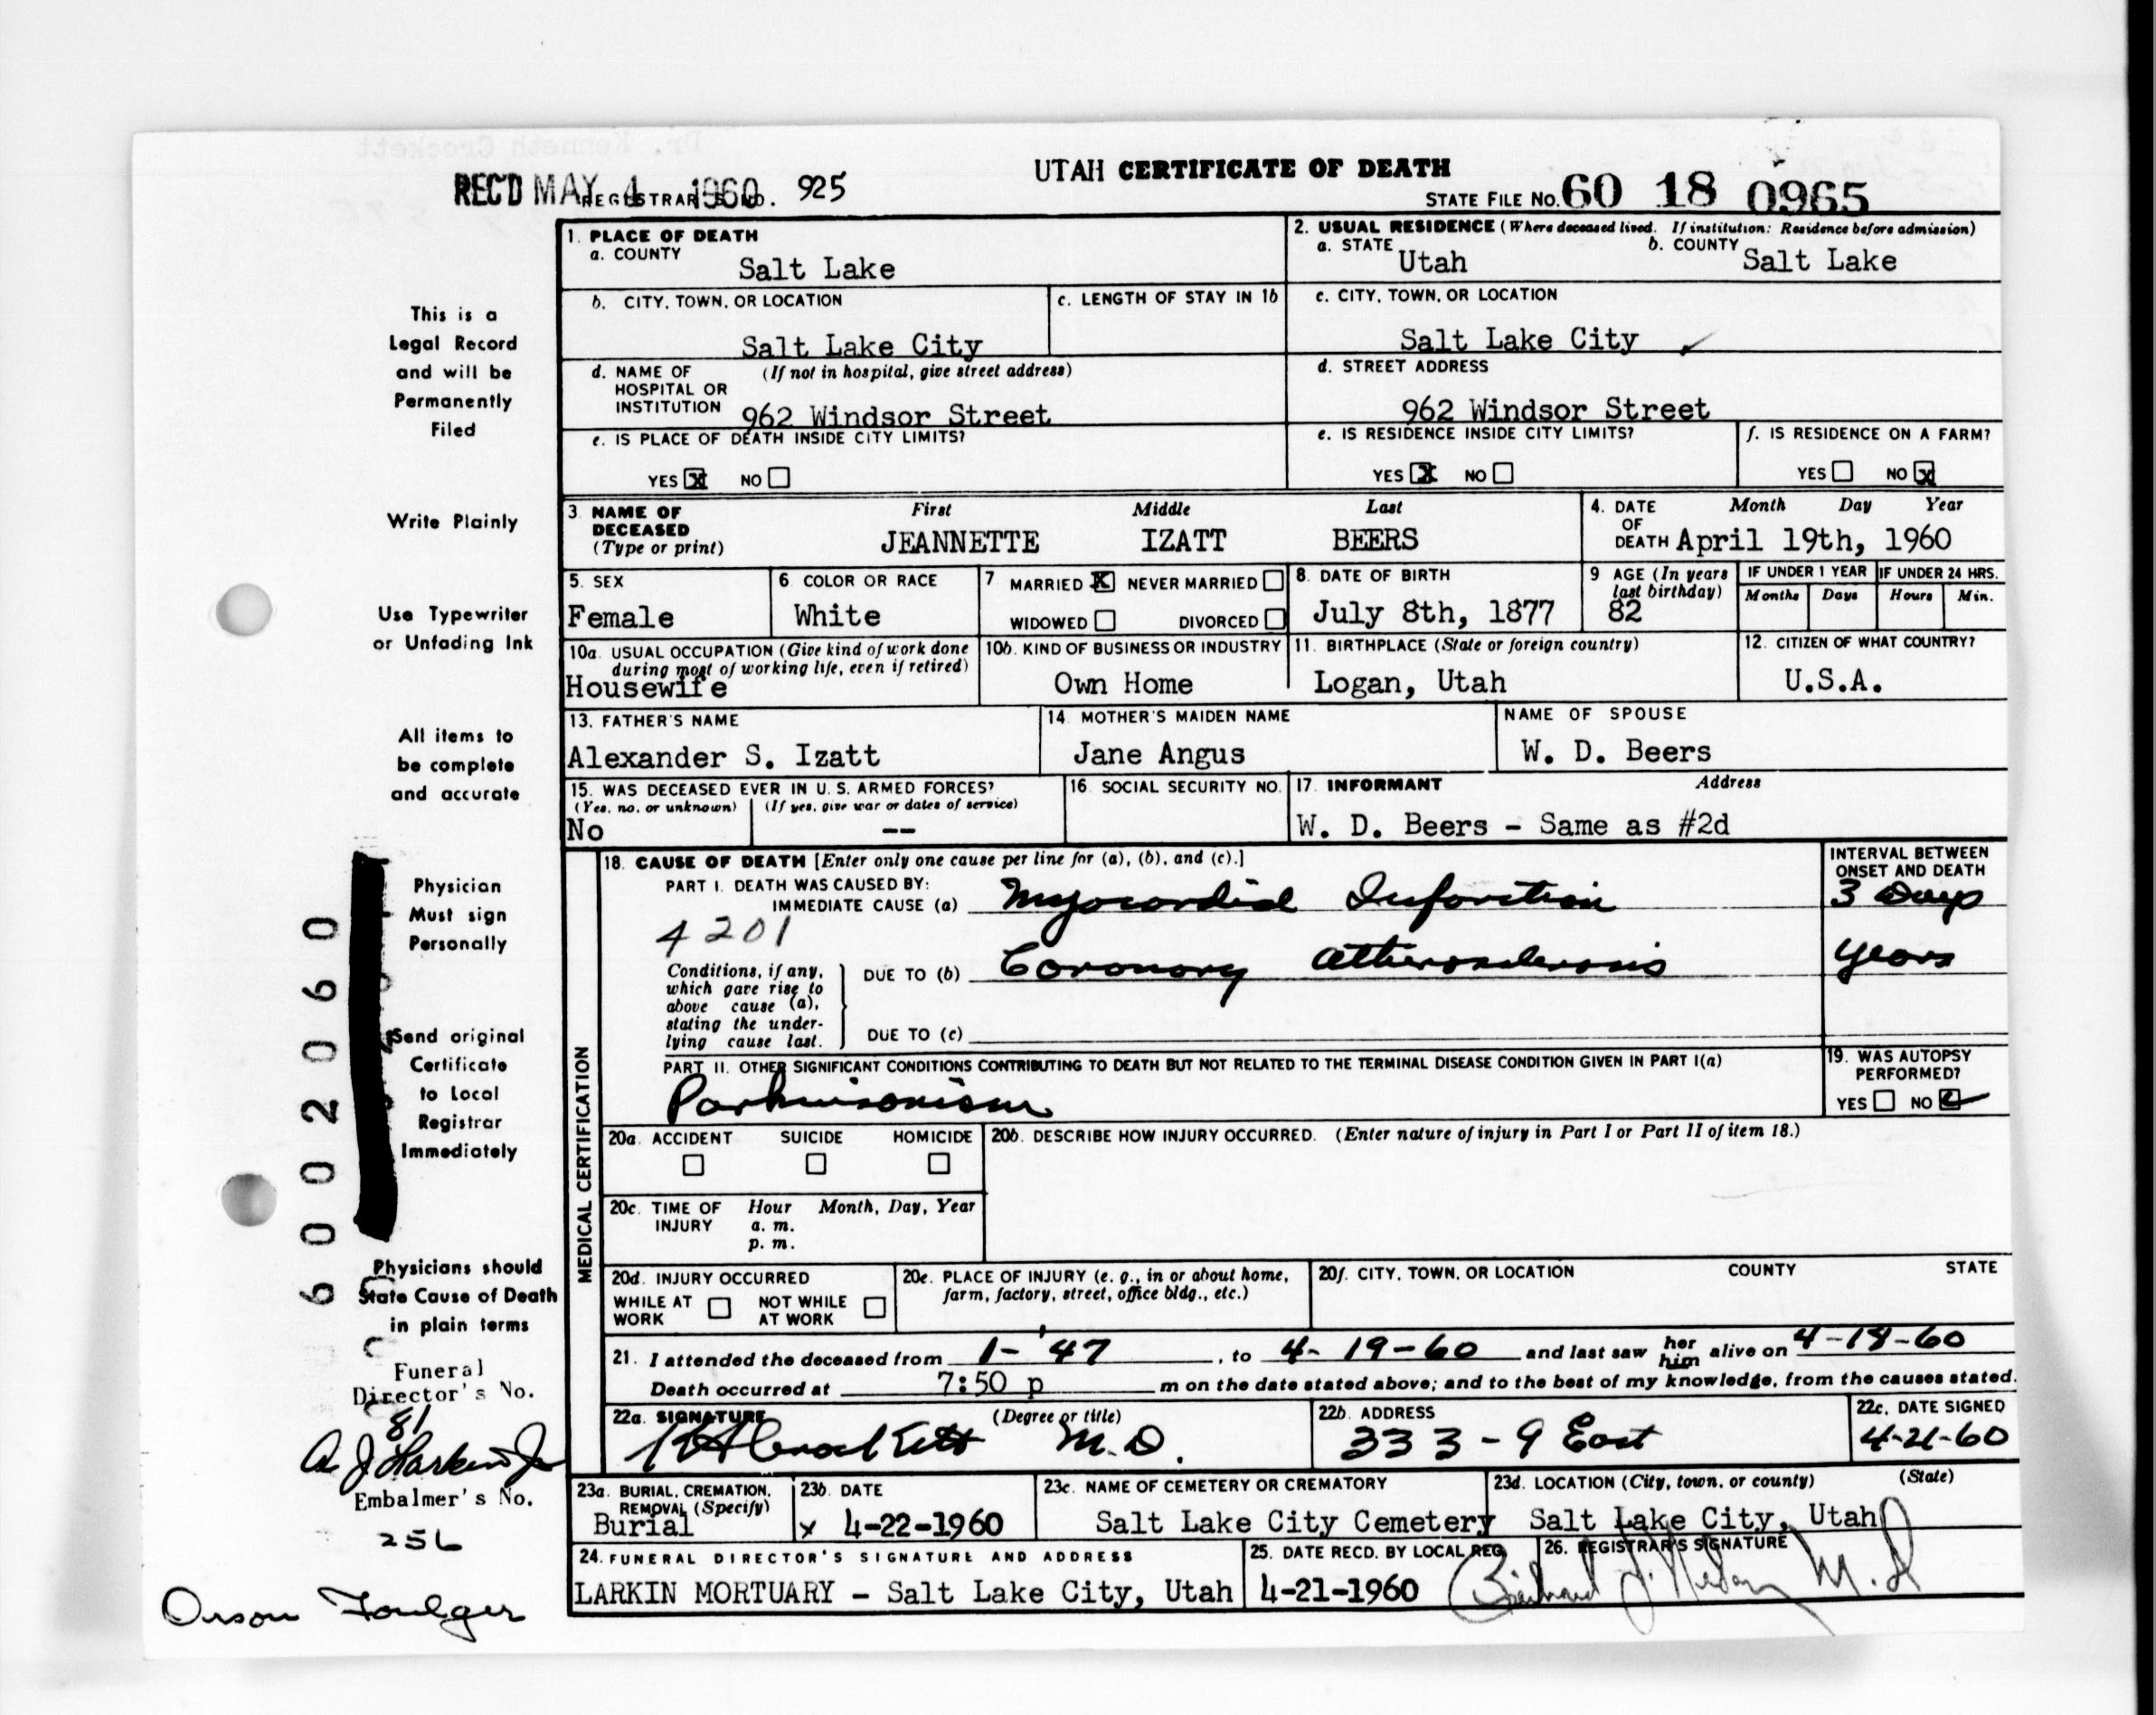 UTAH CERTIFICATE OF DEATH
REC'D MAY 4 1960 REGISTRAR'S NO. 925
STATE FILE NO. 60 18 0965
1. PLACE OF DEATH
a. COUNTY
Salt Lake
2. USUAL RESIDENCE (Where deceased lived. If institution: Residence before admission)
a. STATE Utah b. COUNTY Salt Lake
b. CITY, TOWN, OR LOCATION
Salt Lake City
c. LENGTH OF STAY IN 1b
c. CITY, TOWN, OR LOCATION
Salt Lake City
d. NAME OF HOSPITAL OR INSTITUTION (If not in hospital, give street address)
962 Windsor Street
d. STREET ADDRESS
962 Windsor Street
e. IS PLACE OF DEATH INSIDE CITY LIMITS?
YES X NO
e. IS RESIDENCE INSIDE CITY LIMITS?
YES X NO
f. IS RESIDENCE ON A FARM?
YES NO X
3. NAME OF DECEASED (Type or print)
First Middle Last
JEANNETTE IZATT BEERS
4. DATE OF DEATH Month Day Year
April 19th, 1960
5. SEX
Female
6. COLOR OR RACE
White
7 MARRIED X NEVER MARRIED
WIDOWED DIVORCED
8. DATE OF BIRTH
July 8th, 1877
9 AGE (In years last birthday)
82
IF UNDER 1 YEAR IF UNDER 24 HRS.
Months Days Hours Min.
10a. USUAL OCCUPATION (Give kind of work done during most of working life, even if retired)
Housewife
10b. KIND OF BUSINESS OR INDUSTRY
Own Home
11. BIRTHPLACE (State or foreign country)
Logan, Utah
12. CITIZEN OF WHAT COUNTRY?
U.S.A.
13. FATHER'S NAME
Alexander S. Izatt
14. MOTHER'S MAIDEN NAME
Jane Angus
NAME OF SPOUSE
W. D. Beers
15. WAS DECEASED EVER IN U. S. ARMED FORCES?
(Yes, no, or unknown) (If yes, give war or dates of service)
No --
16. SOCIAL SECURITY NO.
17. INFORMANT Address
W. D. Beers - Same as #2d
MEDICAL CERTIFICATION
18. CAUSE OF DEATH [Enter only one cause per line for (a), (b), and (c).]
INTERVAL BETWEEN ONSET AND DEATH
PART I. DEATH WAS CAUSED BY:
IMMEDIATE CAUSE (a) Myocardial Infarction 3 Days
4201
Conditions, if any, which gave rise to above cause (a), stating the underlying cause last.
DUE TO (b) Coronary Atherosclerosis years
DUE TO (c)
PART II. OTHER SIGNIFICANT CONDITIONS CONTRIBUTING TO DEATH BUT NOT RELATED TO THE TERMINAL DISEASE CONDITION GIVEN IN PART I(a)
Parkinsonism
19. WAS AUTOPSY PERFORMED?
YES NO
20a. ACCIDENT SUICIDE HOMICIDE
20b. DESCRIBE HOW INJURY OCCURRED. (Enter nature of injury in Part I or Part II of item 18.)
20c. TIME OF INJURY Hour Month, Day, Year
a. m.
p. m.
20d. INJURY OCCURRED
WHILE AT WORK NOT WHILE AT WORK
20e. PLACE OF INJURY (e. g., in or about home, farm, factory, street, office bldg., etc.)
20f. CITY, TOWN, OR LOCATION COUNTY STATE
21. I attended the deceased from 1- '47, to 4-19-60 and last saw her him alive on 4-18-60
Death occurred at 7:50 p m on the date stated above; and to the best of my knowledge, from the causes stated.
22a. SIGNATURE (Degree or title)
K A Crockett M.D.
22b. ADDRESS
333 - 9 East
22c. DATE SIGNED
4-21-60
23a. BURIAL, CREMATION, REMOVAL (Specify)
Burial
23b. DATE
x 4-22-1960
23c. NAME OF CEMETERY OR CREMATORY
Salt Lake City Cemetery
23d. LOCATION (City, town, or county) (State)
Salt Lake City, Utah
24. FUNERAL DIRECTOR'S SIGNATURE AND ADDRESS
LARKIN MORTUARY - Salt Lake City, Utah
25. DATE RECD. BY LOCAL REG.
4-21-1960
26. REGISTRAR'S SIGNATURE
M.D
This is a
Legal Record
and will be
Permanently
Filed
Write Plainly
Use Typewriter
or Unfading Ink
All items to
be complete
and accurate
Physician
Must sign
Personally
Send original
Certificate
to Local
Registrar
Immediately
Physicians should
State Cause of Death
in plain terms
6002060
Funeral
Director's No.
81
A J Larkin Jr
Embalmer's No.
256
Orson Foulger